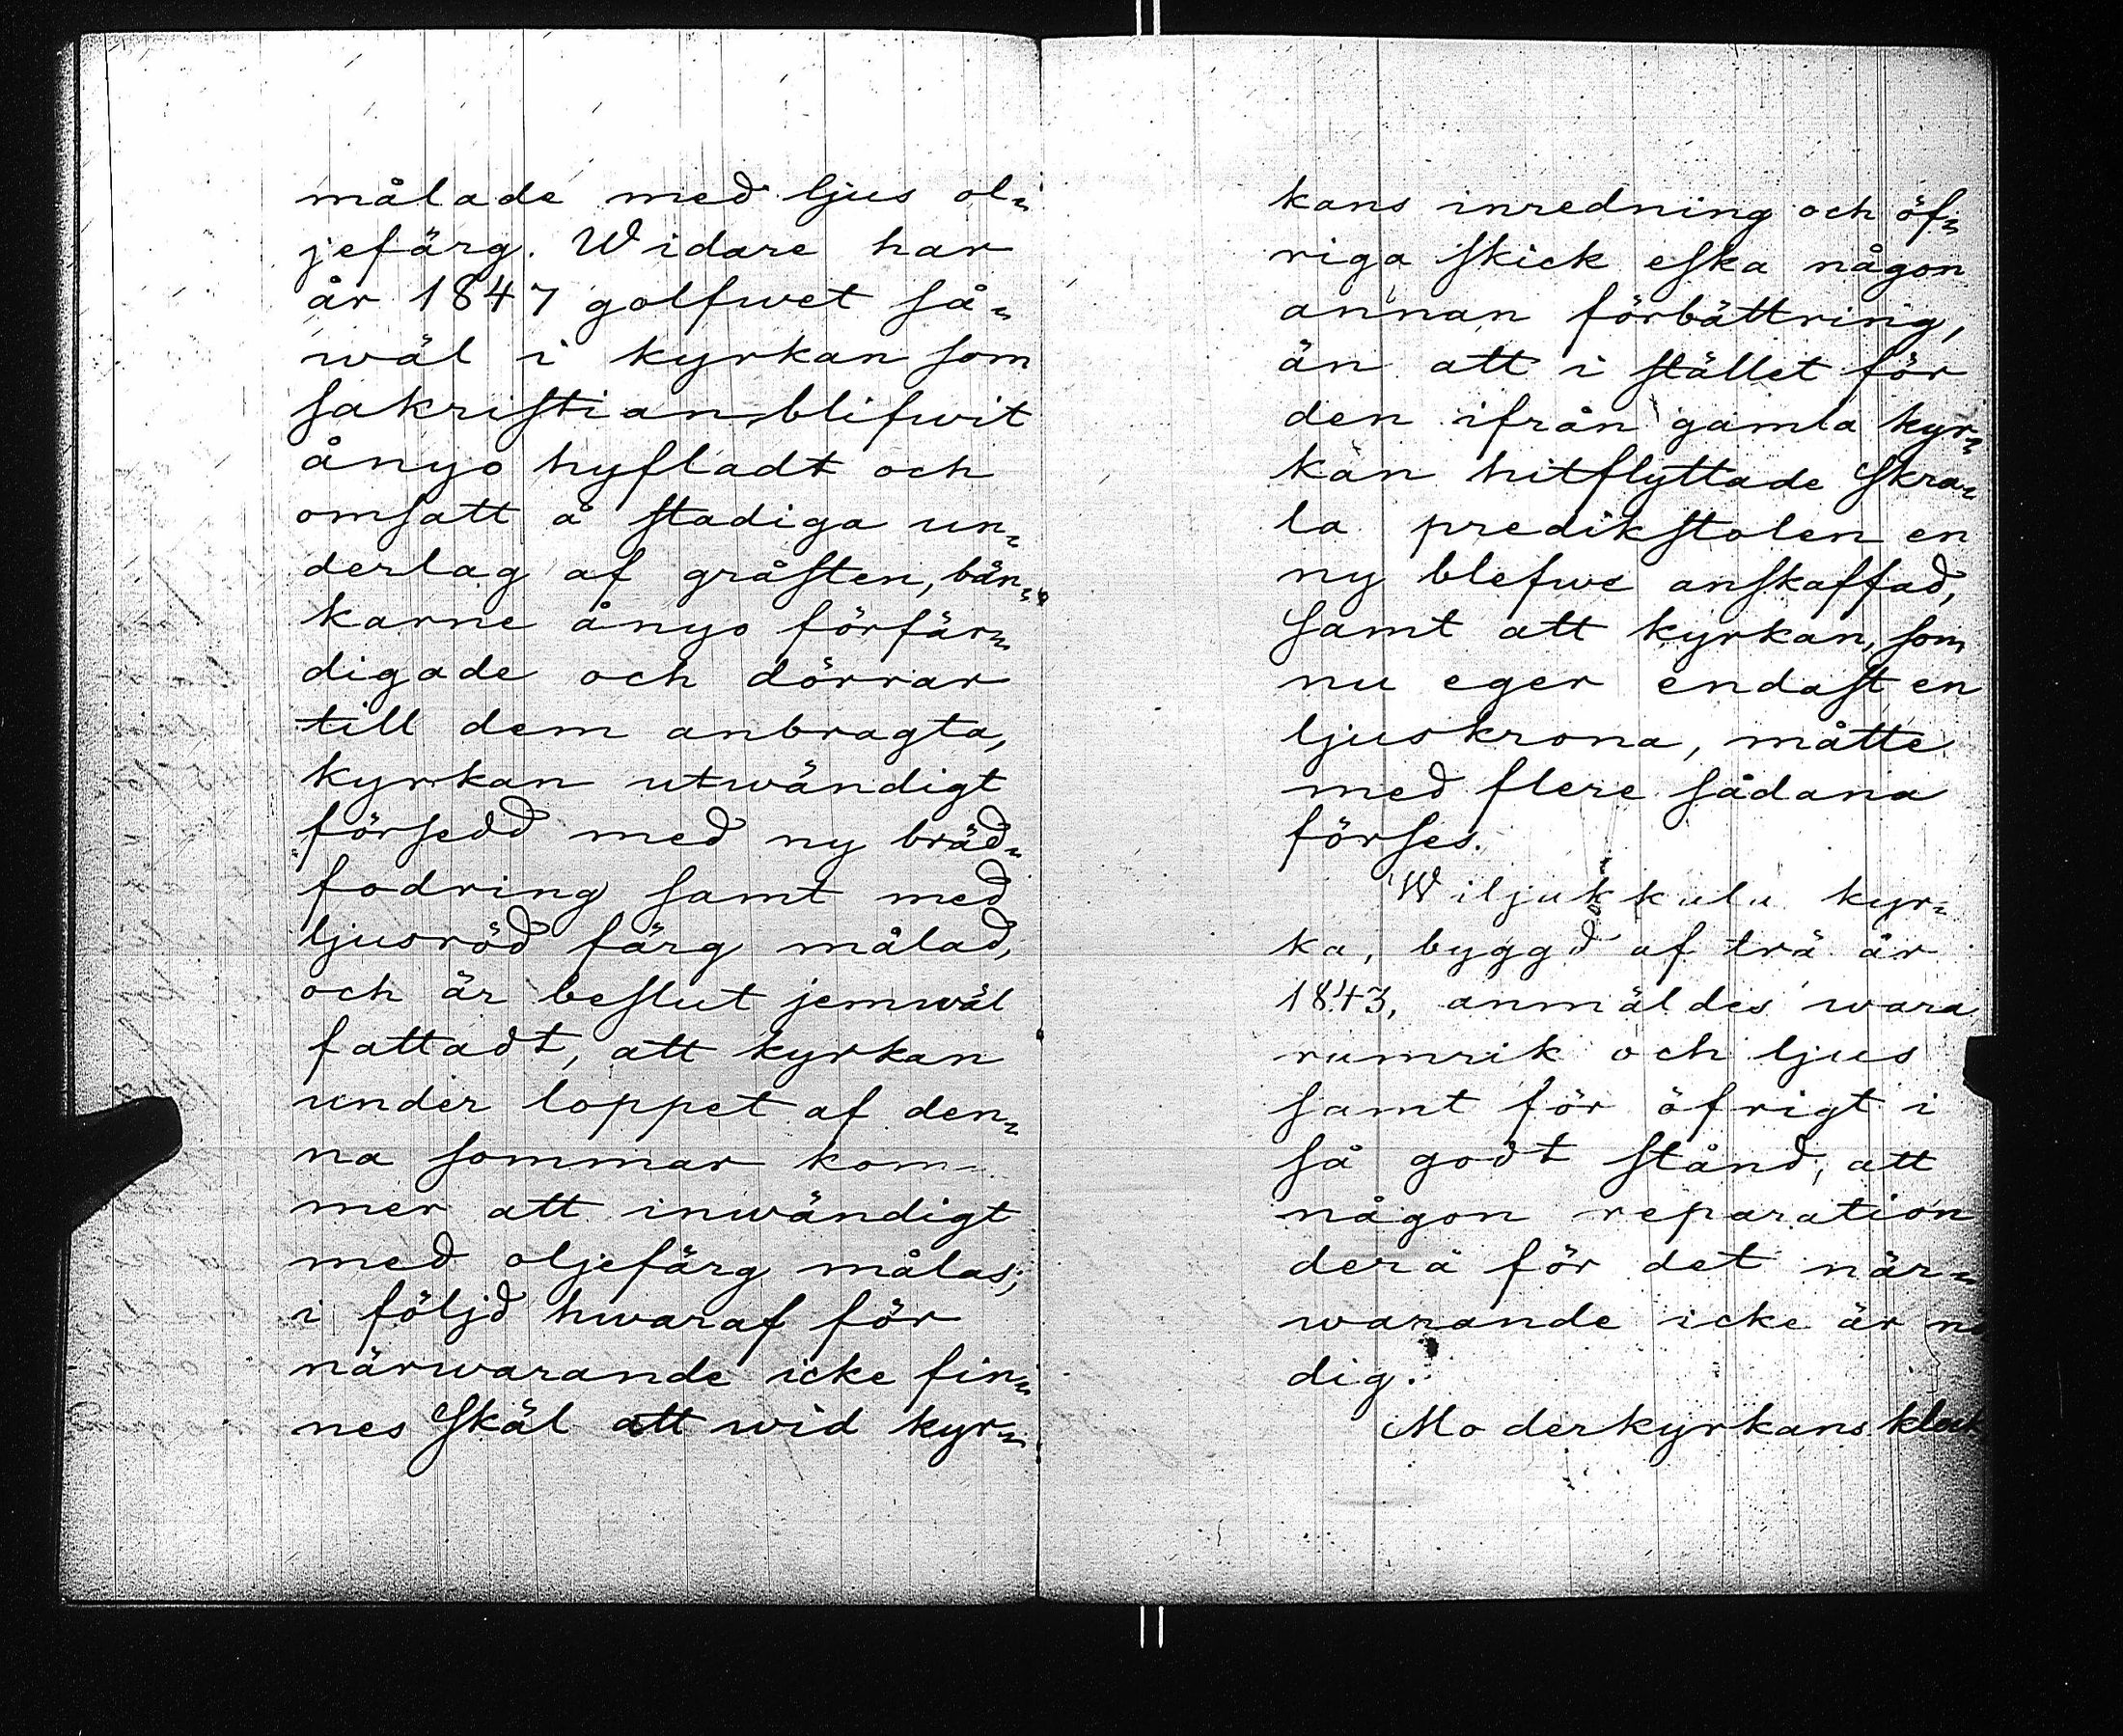 målade med ljus ol=
jefärg. Widare har
år 1847 golfwet så=
wäl i kyrkan som
sakristian blifwit
ånyo hyfladt och
omsatt å stadiga un=
derlag af gråsten, bän=
karne ånyo förfär=
digade och dörrar
till dem anbragta,
kyrkan utwändigt
försedd med ny bräd=
fodring samt med
ljusröd färg målad,
och är beslut jemwäl
fattadt, att kyrkan
under loppet af den=
na sommar kom=
mer att inwändigt
med oljefärg målas;
i följd hwaraf för
närwarande icke fin=
nes skäl att wid kyr=
kans inredning och öf=
riga skick eska någon
annan förbättring,
än att i stället för
den ifrån gamla kyr=
kan hitflyttade skra=
la predikstolen en
ny blefwe anskaffad,
samt att kyrkan, som
nu eger endast en
ljuskrona, måtte
med flere sådana
förses.
Wiljukkala kyr=
ka, byggd af trä år
1843, anmäldes wara
rumrik och ljus
samt för öfrigt i
så godt stånd, att
någon reparation
derå för det när=
warande icke är nö
dig.
Moderkyrkans klock